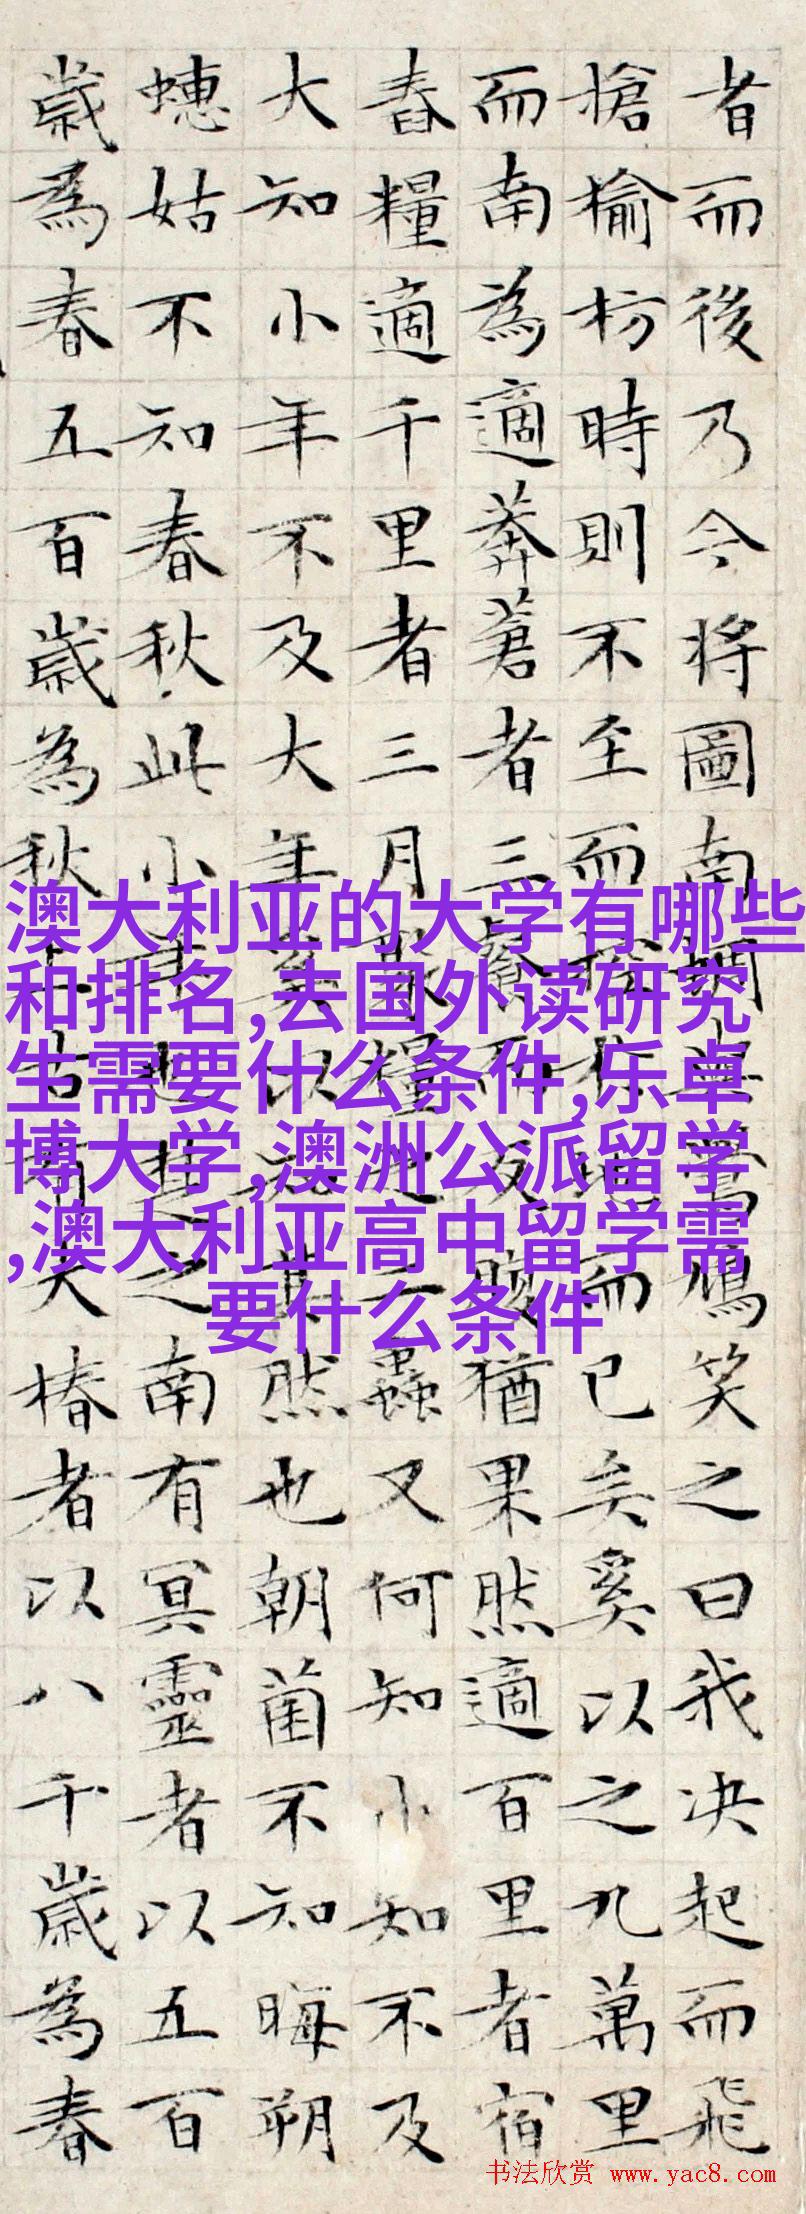 者而後乃今將圖南蜩與鷽鳩笑之曰我决起而飛
搶榆枋時則不至而控於地而已矣奚以之九萬里
而南為適莽蒼者三餐而反腹猶果然適百里者宿
舂糧適千里者三月聚糧之二蟲又何知小知不及
大知小年不及大年奚以知其然也朝菌不知晦朔
蟪姑不知春秋此小年也楚之南有冥靈者以五百
歲為春五百歲為秋上古有大椿者以八千歲為春
澳大利亚的大学有哪些
和排名,去国外读研究
生需要什么条件,乐卓
博大学,澳洲公派留学
,澳大利亚高中留学需
要什么条件
书法欣赏 www.yac8.com